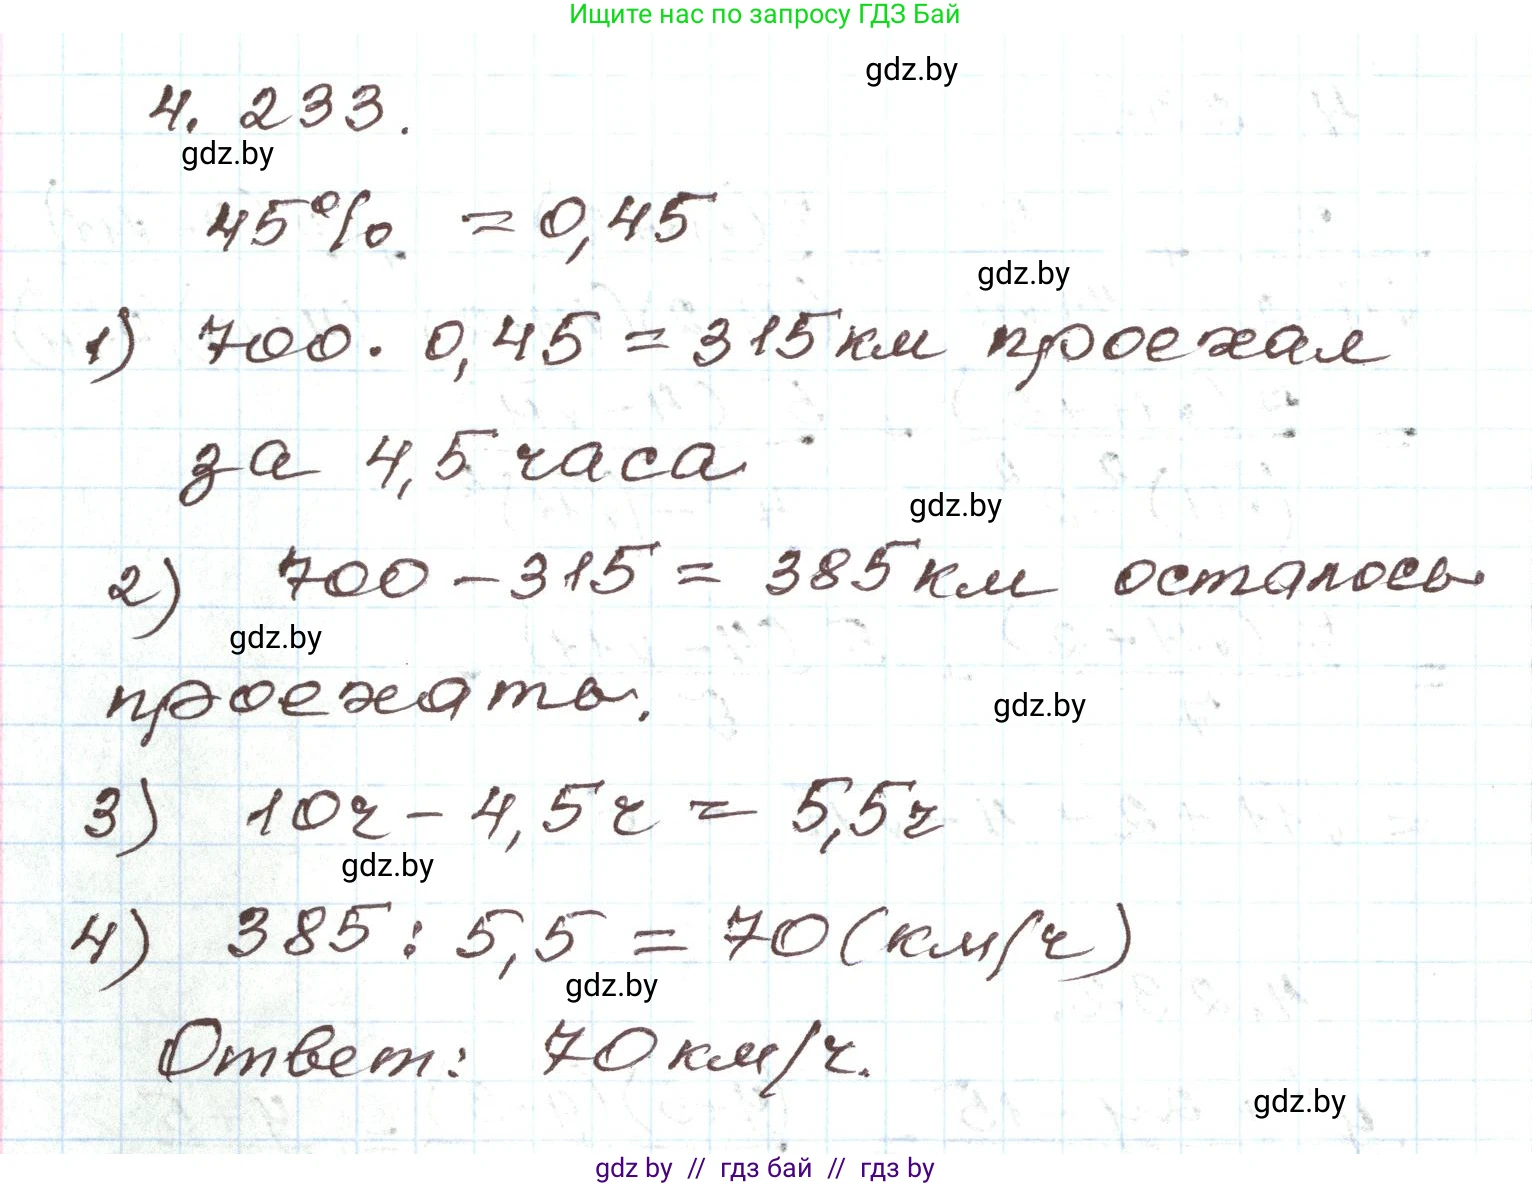 Ищите нас по запросу ГДЗ Бай
gdz.by
4. 233.
gdz.by
45% = 0,45
gdz.by
1) 700 · 0,45 = 315 км проехал
за 4,5 часа
gdz.by
2) 700 - 315 = 385 км осталось
gdz.by
проехать.
gdz.by
3) 10ч - 4,5ч = 5,5ч
gdz.by
4) 385 : 5,5 = 70 (км/ч)
gdz.by
Ответ: 70 км/ч.
gdz.by
gdz by // гдз бай // гдз by